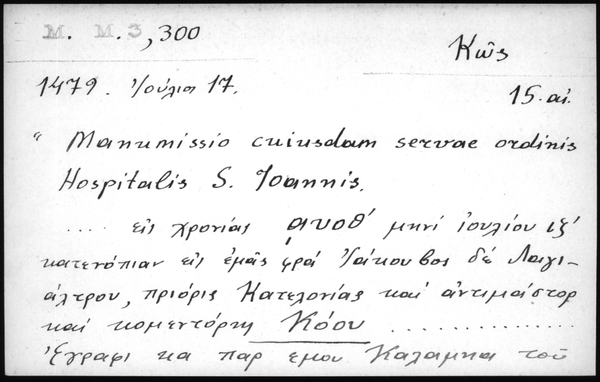 M. M. 3, 300
Κῶς
1479. Ἰούλιος 17.
15. αἰ.
" Manumissio cuiusdam servae ordinis
Hospitalis S. Joannis.
.... εἰς χρονίας ͵αυοθ΄ μηνί ἰουλίου ιζ΄
κατενόπιαν εἰς ἐμᾶς φρά Ἰάκουβος δέ Λαγι-
άλτρου, πριόρις Κατελονίας καί ἀντιμάστορ
καί κομεντόρης Κόου ..............
Ἔγραφι κα παρ εμου Καλαμηαι τοῦ